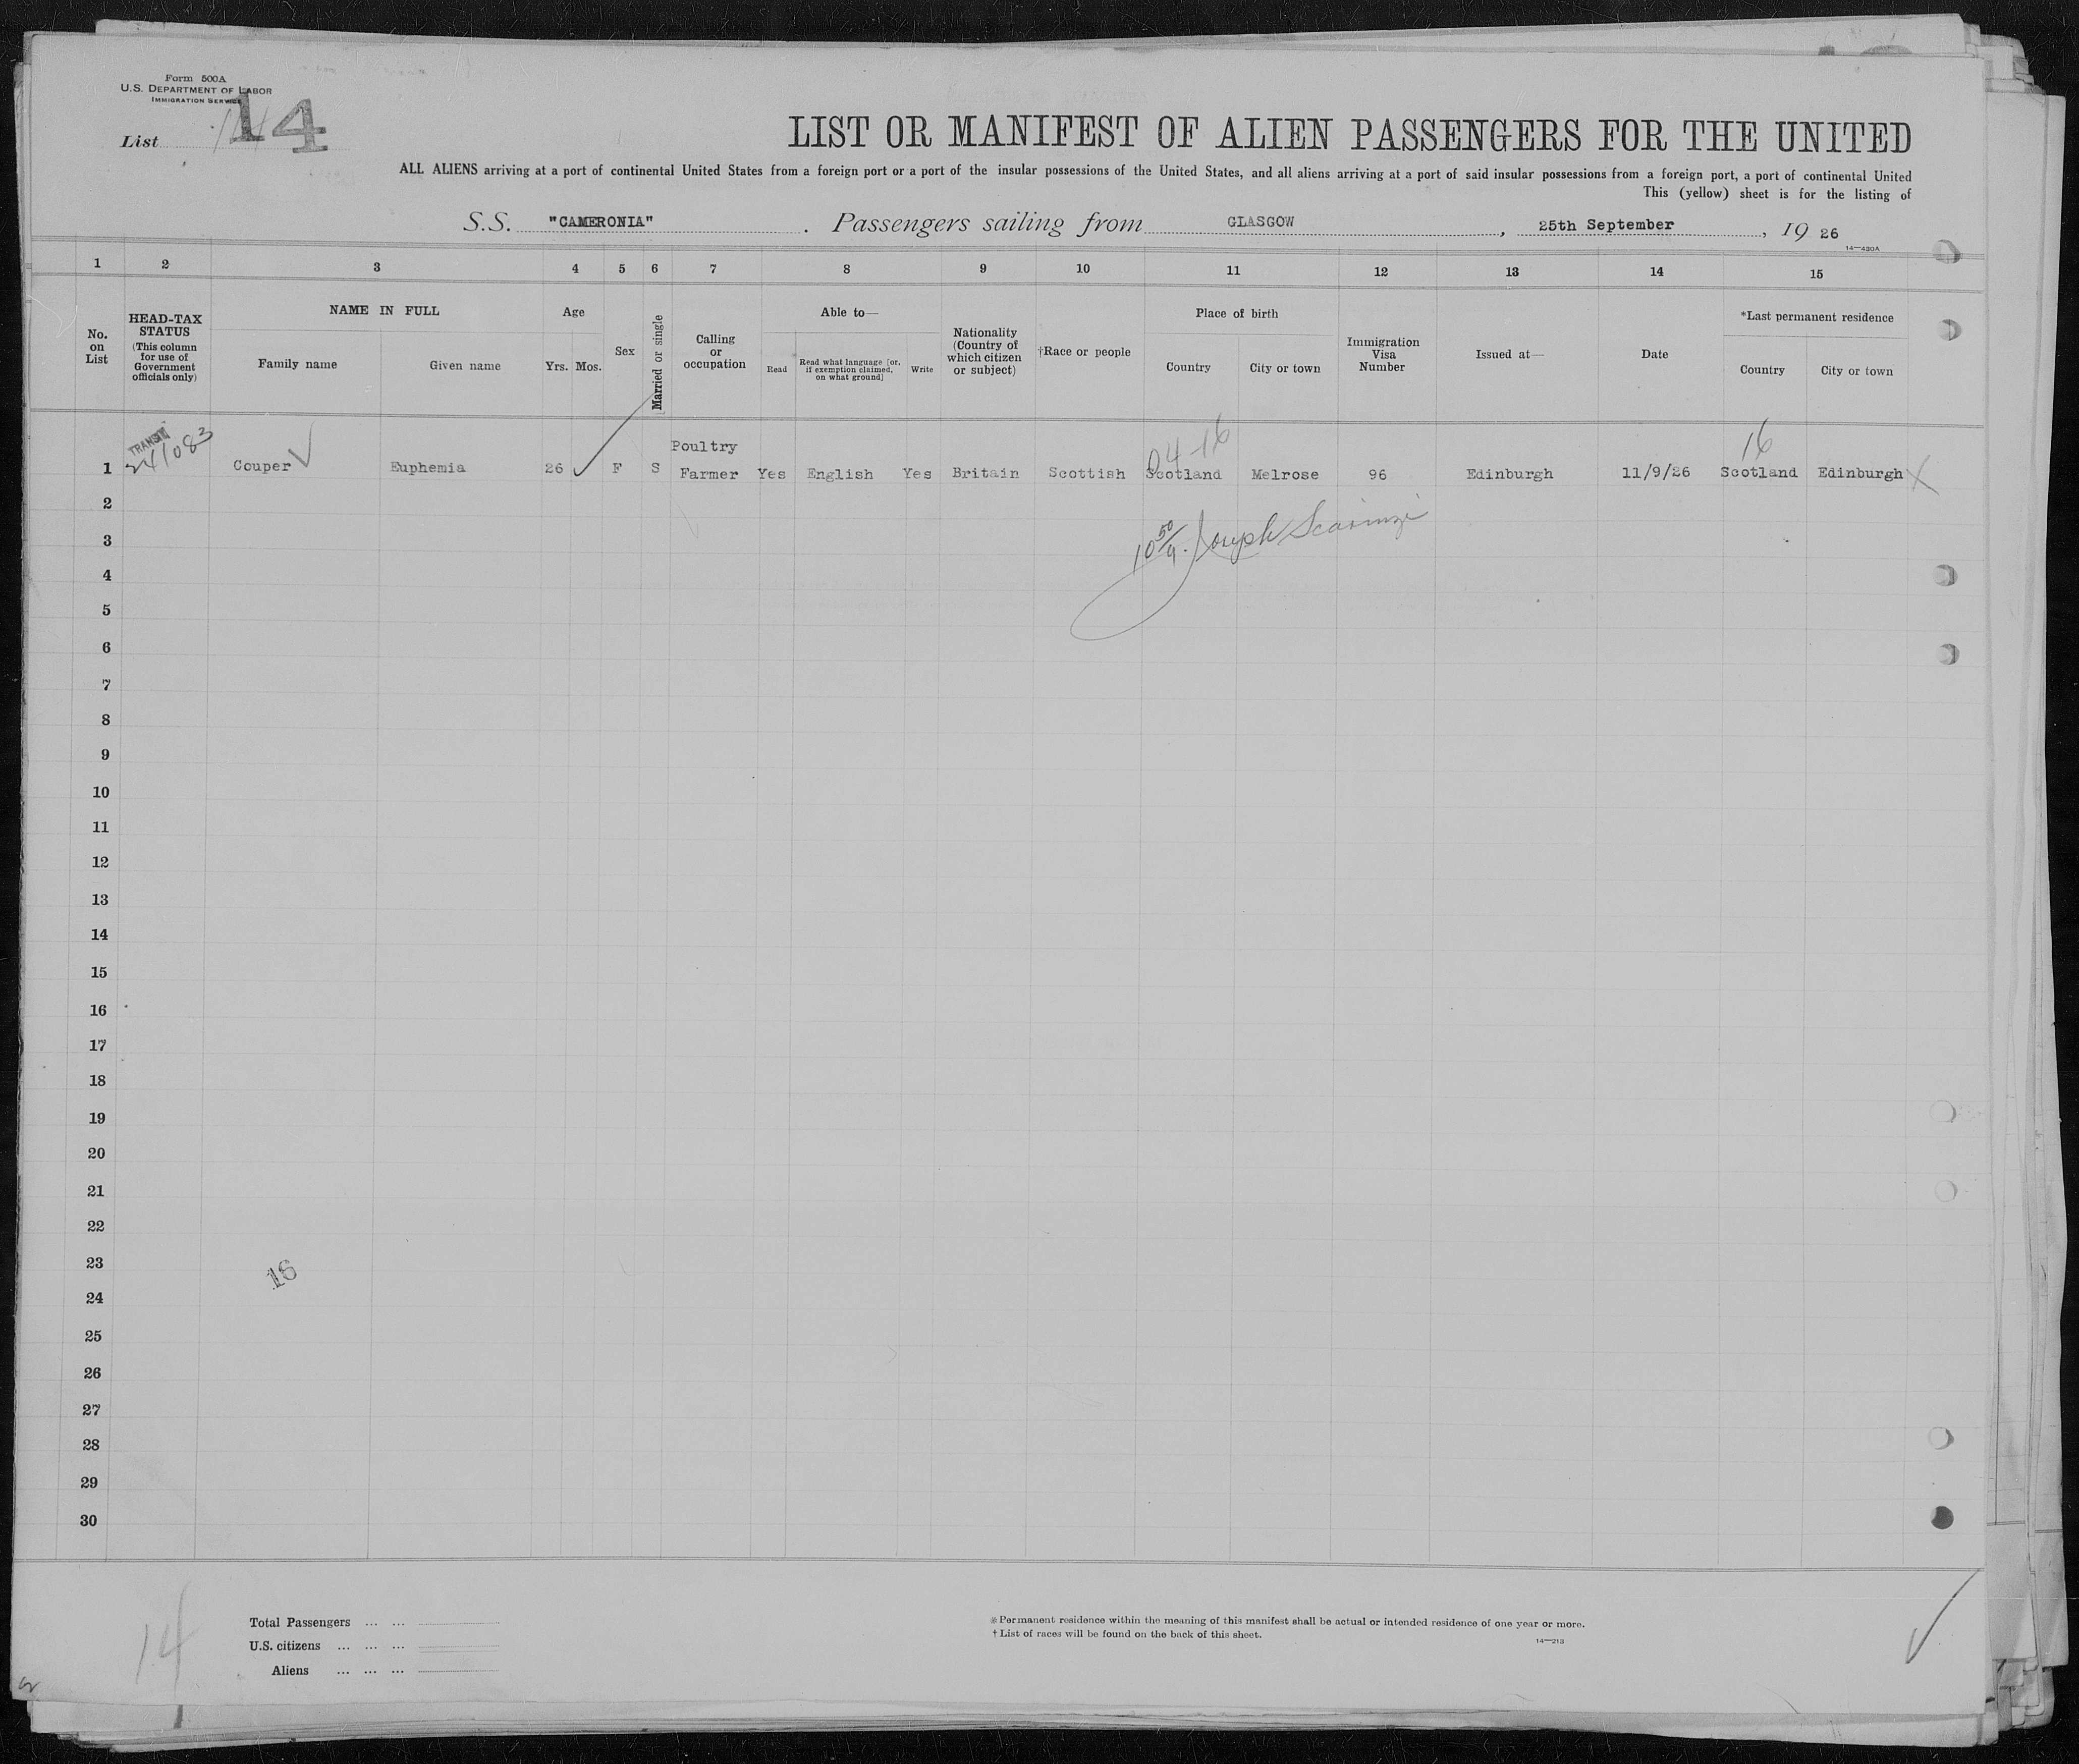 Form 500A
U.S. DEPARTMENT OF LABOR
IMMIGRATION SERVICE
List 14
LIST OR MANIFEST OF ALIEN PASSENGERS FOR THE UNITED
ALL ALIENS arriving at a port of continental United States from a foreign port or a port of the insular possessions of the United States, and all aliens arriving at a port of said insular possessions from a foreign port, a port of continental United
This (yellow) sheet is for the listing of
S.S. "CAMERONIA". Passengers sailing from GLASGOW, 25th September, 19 26
14—430A
1 2 3 4 5 6 7 8 9 10 11 12 13 14 15
No. on List
HEAD-TAX STATUS
(This column for use of Government officials only)
NAME IN FULL
Family name
Given name
Age
Yrs. Mos.
Sex
Married or single
Calling or occupation
Able to—
Read
Read what language [or, if exemption claimed, on what ground]
Write
Nationality (Country of which citizen or subject)
†Race or people
Place of birth
Country
City or town
Immigration Visa Number
Issued at—
Date
*Last permanent residence
Country
City or town
TRANSIT
241083
04-16
16
Poultry
1 Couper Euphemia 26 F S Farmer Yes English Yes Britain Scottish Scotland Melrose 96 Edinburgh 11/9/26 Scotland Edinburgh X
2
10 50/ Joseph Scarinzi
3
4
5
6
7
8
9
10
11
12
13
14
15
16
17
18
19
20
21
22
23
16
24
25
26
27
28
29
30
14
Total Passengers ... ...
U.S. citizens ... ... ...
Aliens ... ... ...
* Permanent residence within the meaning of this manifest shall be actual or intended residence of one year or more.
† List of races will be found on the back of this sheet.
14—213